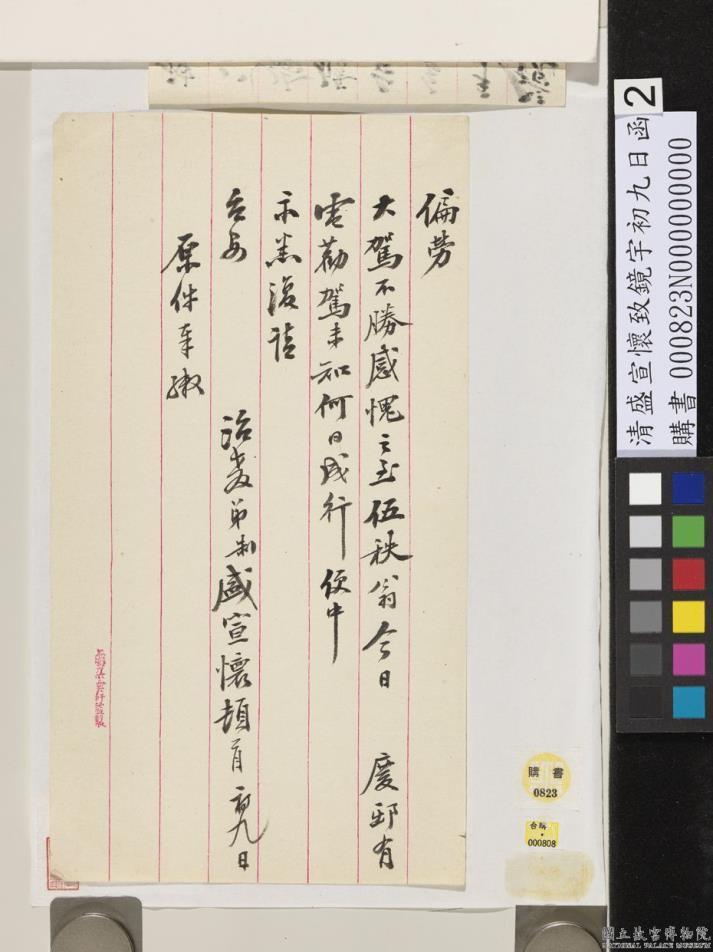 偏勞
大駕不勝感愧之至伍秩翁今日 慶邸有
電勸駕未知何日成行便中
示悉復請
台安
治教弟制盛宣懷頓首 初九日
原件奉繳
2
清盛宣懷致鏡宇初九日函
購書 000823N000000000
購書
0823
台購
000808
國立故宮博物院
NATIONAL PALACE MUSEUM